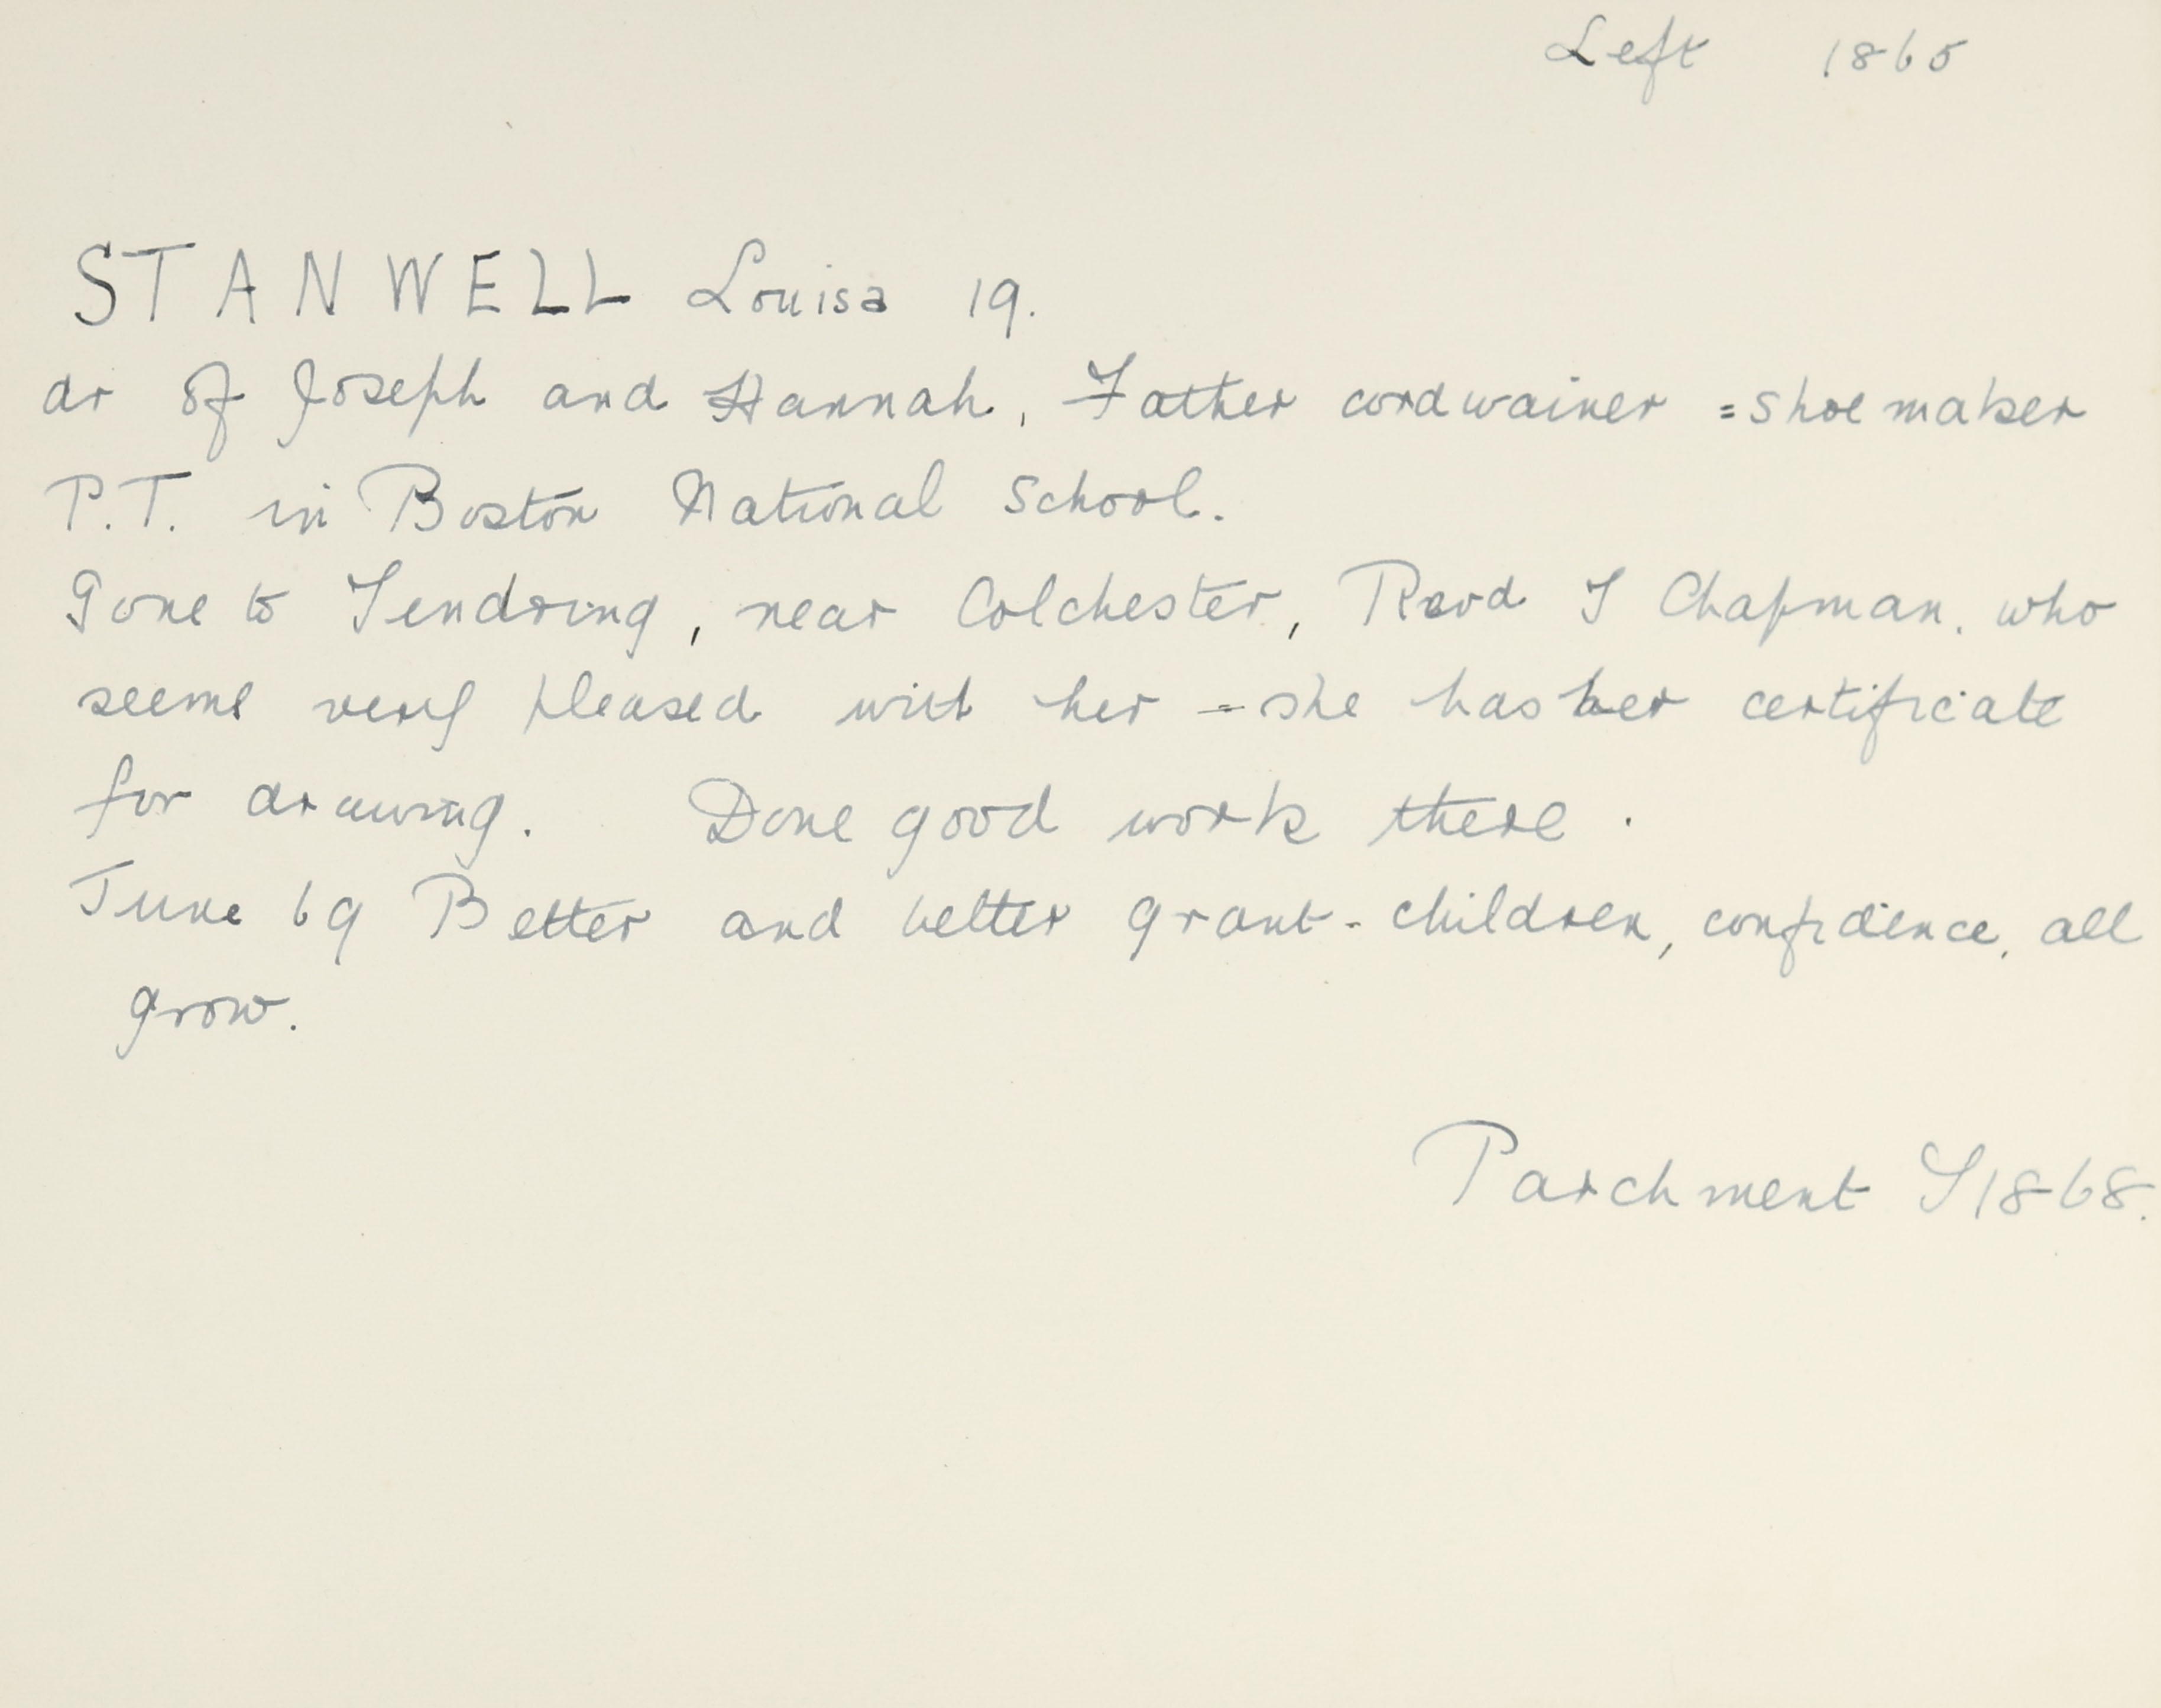 Left 1865
STANWELL Louisa 19.
dr of Joseph and Hannah, Father cordwainer = shoemaker
P.T. in Boston National School.
Gone to Tendring, near Colchester, Revd J Chapman. who
seems very pleased with her = she has her certificate
for drawing. Done good work there.
June 69 Better and better grant - children, confidence, all
grow.
Parchment 1868.